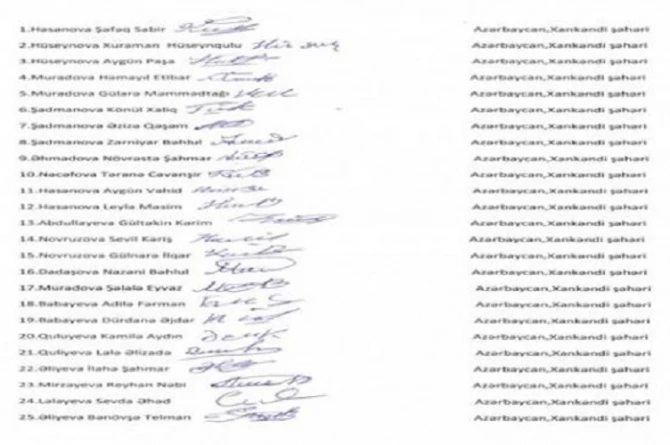 1.Həsənova Şəfəq Sabir Azərbaycan,Xankəndi şəhəri
2.Hüseynova Xuraman Hüseynqulu Azərbaycan,Xankəndi şəhəri
3.Hüseynova Aygün Paşa Azərbaycan,Xankəndi şəhəri
4.Muradova Həmayıl Etibar Azərbaycan,Xankəndi şəhəri
5.Muradova Gülarə Məmmədtağı Azərbaycan,Xankəndi şəhəri
6.Şadmanova Könül Xalıq Azərbaycan,Xankəndi şəhəri
7.Şadmanova Əzizə Qəşəm Azərbaycan,Xankəndi şəhəri
8.Şadmanova Zərniyar Bəhlul Azərbaycan,Xankəndi şəhəri
9.Əhmədova Növrəstə Şahmar Azərbaycan,Xankəndi şəhəri
10.Nəcəfova Təranə Cavanşir Azərbaycan,Xankəndi şəhəri
11.Həsənova Aygün Vahid Azərbaycan,Xankəndi şəhəri
12.Həsənova Leyla Məsim Azərbaycan,Xankəndi şəhəri
13.Abdullayeva Gültəkin Kərim Azərbaycan,Xankəndi şəhəri
14.Novruzova Sevil Kariş Azərbaycan,Xankəndi şəhəri
15.Novruzova Gülnarə İlqar Azərbaycan,Xankəndi şəhəri
16.Dadaşova Nazəni Bəhlul Azərbaycan,Xankəndi şəhəri
17.Muradova Şəlalə Eyvaz Azərbaycan,Xankəndi şəhəri
18.Babayeva Adilə Fərman Azərbaycan,Xankəndi şəhəri
19.Babayeva Dürdanə Əjdər Azərbaycan,Xankəndi şəhəri
20.Quluyeva Kəmilə Aydın Azərbaycan,Xankəndi şəhəri
21.Quliyeva Lalə Əlizadə Azərbaycan,Xankəndi şəhəri
22.Əliyeva İlahə Şahmar Azərbaycan,Xankəndi şəhəri
23.Mirzəyeva Reyhan Nəbi Azərbaycan,Xankəndi şəhəri
24.Lələyeva Sevda Əhəd Azərbaycan,Xankəndi şəhəri
25.Əliyeva Bənövşə Telman Azərbaycan,Xankəndi şəhəri